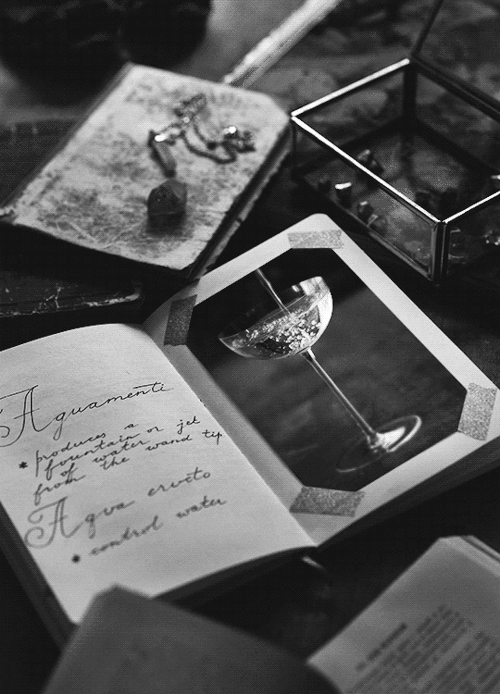 Aguamenti
* produces a
fountain or jet
of water
from the wand tip
Aqua eructo
* control water